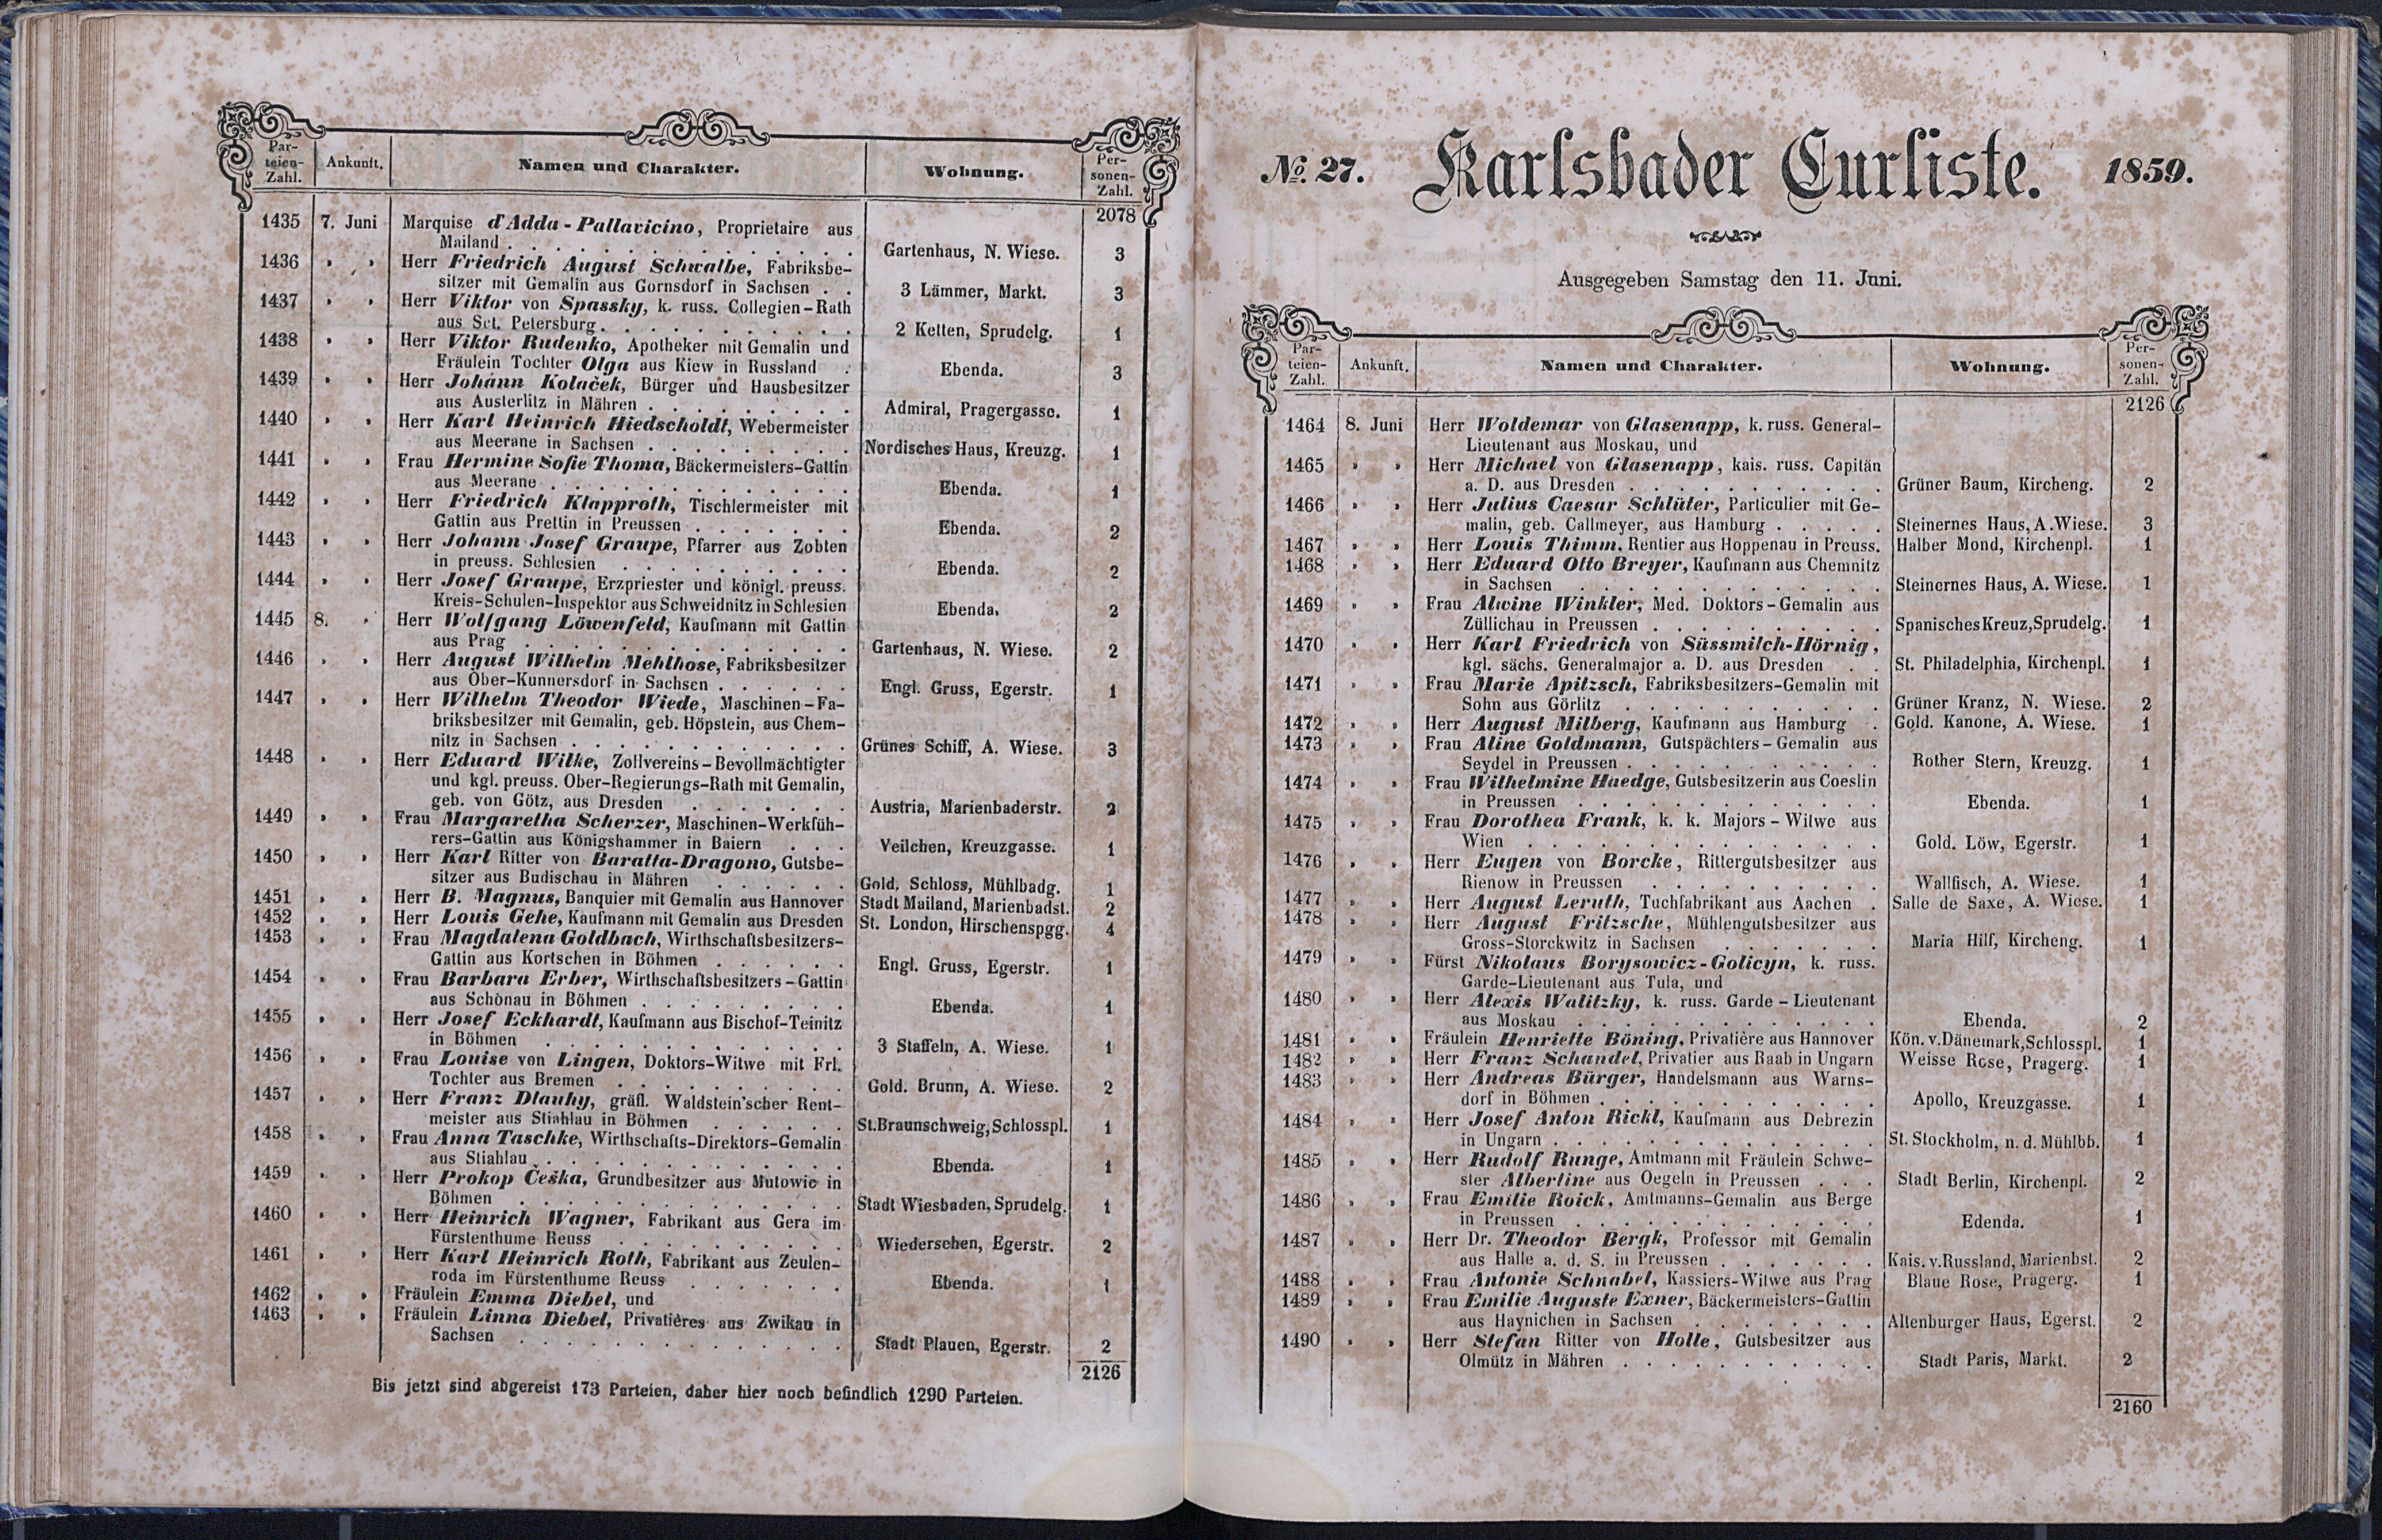 Par-
teien-
Zahl. Ankunft. Namen und Charakter. Wohnung. Per-
sonen-
Zahl.
2078
1435 7. Juni Marquise d'Adda-Pallavicino, Proprietaire aus
Mailand . . . Gartenhaus, N. Wiese. 3
1436 " " Herr Friedrich August Schwalbe, Fabriksbe-
sitzer mit Gemalin aus Gornsdorf in Sachsen . . 3 Lämmer, Markt. 3
1437 " " Herr Viktor von Spassky, k. russ. Collegien-Rath
aus Sct. Petersburg . . . 2 Ketten, Sprudelg. 1
1438 " " Herr Viktor Rudenko, Apotheker mit Gemalin und
Fräulein Tochter Olga aus Kiew in Russland . Ebenda. 3
1439 " " Herr Johann Kolaček, Bürger und Hausbesitzer
aus Austerlitz in Mähren . . . Admiral, Pragergasse. 1
1440 " " Herr Karl Heinrich Hiedscholdt, Webermeister
aus Meerane in Sachsen . . . Nordisches Haus, Kreuzg. 1
1441 " " Frau Hermine Sofie Thoma, Bäckermeisters-Gattin
aus Meerane . . . Ebenda. 1
1442 " " Herr Friedrich Klapproth, Tischlermeister mit
Gattin aus Prettin in Preussen . . . Ebenda. 2
1443 " " Herr Johann Josef Graupe, Pfarrer aus Zobten
in preuss. Schlesien . . . Ebenda. 2
1444 " " Herr Josef Graupe, Erzpriester und königl. preuss.
Kreis-Schulen-Inspektor aus Schweidnitz in Schlesien Ebenda. 2
1445 8. " Herr Wolfgang Löwenfeld, Kaufmann mit Gattin
aus Prag . . . Gartenhaus, N. Wiese. 2
1446 " " Herr August Wilhelm Mehlhose, Fabriksbesitzer
aus Ober-Kunnersdorf in Sachsen . . . Engl. Gruss, Egerstr. 1
1447 " " Herr Wilhelm Theodor Wiede, Maschinen-Fa-
briksbesitzer mit Gemalin, geb. Höpstein, aus Chem-
nitz in Sachsen . . . Grünes Schiff, A. Wiese. 3
1448 " " Herr Eduard Wilke, Zollvereins-Bevollmächtigter
und kgl. preuss. Ober-Regierungs-Rath mit Gemalin,
geb. von Götz, aus Dresden . . . Austria, Marienbaderstr. 2
1449 " " Frau Margaretha Scherzer, Maschinen-Werkfüh-
rers-Gattin aus Königshammer in Baiern . . . Veilchen, Kreuzgasse. 1
1450 " " Herr Karl Ritter von Baratta-Dragono, Gutsbe-
sitzer aus Budischau in Mähren . . . Gold. Schloss, Mühlbadg. 1
1451 " " Herr B. Magnus, Banquier mit Gemalin aus Hannover Stadt Mailand, Marienbadst. 2
1452 " " Herr Louis Gehe, Kaufmann mit Gemalin aus Dresden St. London, Hirschenspgg. 4
1453 " " Frau Magdalena Goldbach, Wirthschaftsbesitzers-
Gattin aus Kortschen in Böhmen . . . Engl. Gruss, Egerstr. 1
1454 " " Frau Barbara Erber, Wirthschaftsbesitzers-Gattin
aus Schönau in Böhmen . . . Ebenda. 1
1455 " " Herr Josef Eckhardt, Kaufmann aus Bischof-Teinitz
in Böhmen . . . 3 Staffeln, A. Wiese. 1
1456 " " Frau Louise von Lingen, Doktors-Witwe mit Frl.
Tochter aus Bremen . . . Gold. Brunn, A. Wiese. 2
1457 " " Herr Franz Dlauhy, gräfl. Waldstein'scher Rent-
meister aus Stiahlau in Böhmen . . . St. Braunschweig, Schlosspl. 1
1458 " " Frau Anna Taschke, Wirthschafts-Direktors-Gemalin
aus Stiahlau . . . Ebenda. 1
1459 " " Herr Prokop Češka, Grundbesitzer aus Mutowic in
Böhmen . . . Stadt Wiesbaden, Sprudelg. 1
1460 " " Herr Heinrich Wagner, Fabrikant aus Gera im
Fürstenthume Reuss . . . Wiedersehen, Egerstr. 2
1461 " " Herr Karl Heinrich Roth, Fabrikant aus Zeulen-
roda im Fürstenthume Reuss . . . Ebenda. 1
1462 " " Fräulein Emma Diebel, und
1463 " " Fräulein Linna Diebel, Privatières aus Zwikau in
Sachsen . . . Stadt Plauen, Egerstr. 2
2126
Bis jetzt sind abgereist 173 Parteien, daher hier noch befindlich 1290 Parteien.
No. 27. Karlsbader Curliste. 1859.
Ausgegeben Samstag den 11. Juni.
Par-
teien-
Zahl. Ankunft. Namen und Charakter. Wohnung. Per-
sonen-
Zahl.
2126
1464 8. Juni Herr Woldemar von Glasenapp, k. russ. General-
Lieutenant aus Moskau, und
1465 " " Herr Michael von Glasenapp, kais. russ. Capitän
a. D. aus Dresden . . . Grüner Baum, Kircheng. 2
1466 " " Herr Julius Caesar Schlüter, Particulier mit Ge-
malin, geb. Callmeyer, aus Hamburg . . . Steinernes Haus, A. Wiese. 3
1467 " " Herr Louis Thimm, Rentier aus Hoppenau in Preuss. Halber Mond, Kirchenpl. 1
1468 " " Herr Eduard Otto Breyer, Kaufmann aus Chemnitz
in Sachsen . . . Steinernes Haus, A. Wiese. 1
1469 " " Frau Alwine Winkler, Med. Doktors-Gemalin aus
Züllichau in Preussen . . . Spanisches Kreuz, Sprudelg. 1
1470 " " Herr Karl Friedrich von Süssmilch-Hörnig,
kgl. sächs. Generalmajor a. D. aus Dresden . . St. Philadelphia, Kirchenpl. 1
1471 " " Frau Marie Apitzsch, Fabriksbesitzers-Gemalin mit
Sohn aus Görlitz . . . Grüner Kranz, N. Wiese. 2
1472 " " Herr August Milberg, Kaufmann aus Hamburg . Gold. Kanone, A. Wiese. 1
1473 " " Frau Aline Goldmann, Gutspächters-Gemalin aus
Seydel in Preussen . . . Rother Stern, Kreuzg. 1
1474 " " Frau Wilhelmine Haedge, Gutsbesitzerin aus Coeslin
in Preussen . . . Ebenda. 1
1475 " " Frau Dorothea Frank, k. k. Majors-Witwe aus
Wien . . . Gold. Löw, Egerstr. 1
1476 " " Herr Eugen von Borcke, Rittergutsbesitzer aus
Rienow in Preussen . . . Wallfisch, A. Wiese. 1
1477 " " Herr August Leruth, Tuchfabrikant aus Aachen . Salle de Saxe, A. Wiese. 1
1478 " " Herr August Fritzsche, Mühlengutsbesitzer aus
Gross-Storckwitz in Sachsen . . . Maria Hilf, Kircheng. 1
1479 " " Fürst Nikolaus Borysowicz-Golicyn, k. russ.
Garde-Lieutenant aus Tula, und
1480 " " Herr Alexis Walitzky, k. russ. Garde-Lieutenant
aus Moskau . . . Ebenda. 2
1481 " " Fräulein Henriette Böning, Privatière aus Hannover Kön. v. Dänemark, Schlosspl. 1
1482 " " Herr Franz Schandel, Privatier aus Raab in Ungarn Weisse Rose, Pragerg. 1
1483 " " Herr Andreas Bürger, Handelsmann aus Warns-
dorf in Böhmen . . . Apollo, Kreuzgasse. 1
1484 " " Herr Josef Anton Rickl, Kaufmann aus Debrezin
in Ungarn . . . St. Stockholm, n. d. Mühlbb. 1
1485 " " Herr Rudolf Runge, Amtmann mit Fräulein Schwe-
ster Albertine aus Oegeln in Preussen . . . Stadt Berlin, Kirchenpl. 2
1486 " " Frau Emilie Roick, Amtmanns-Gemalin aus Berge
in Preussen . . . Edenda. 1
1487 " " Herr Dr. Theodor Bergk, Professor mit Gemalin
aus Halle a. d. S. in Preussen . . . Kais. v. Russland, Marienbst. 2
1488 " " Frau Antonie Schnabel, Kassiers-Witwe aus Prag Blaue Rose, Pragerg. 1
1489 " " Frau Emilie Auguste Exner, Bäckermeisters-Gattin
aus Haynichen in Sachsen . . . Altenburger Haus, Egerst. 2
1490 " " Herr Stefan Ritter von Holle, Gutsbesitzer aus
Olmütz in Mähren . . . Stadt Paris, Markt. 2
2160